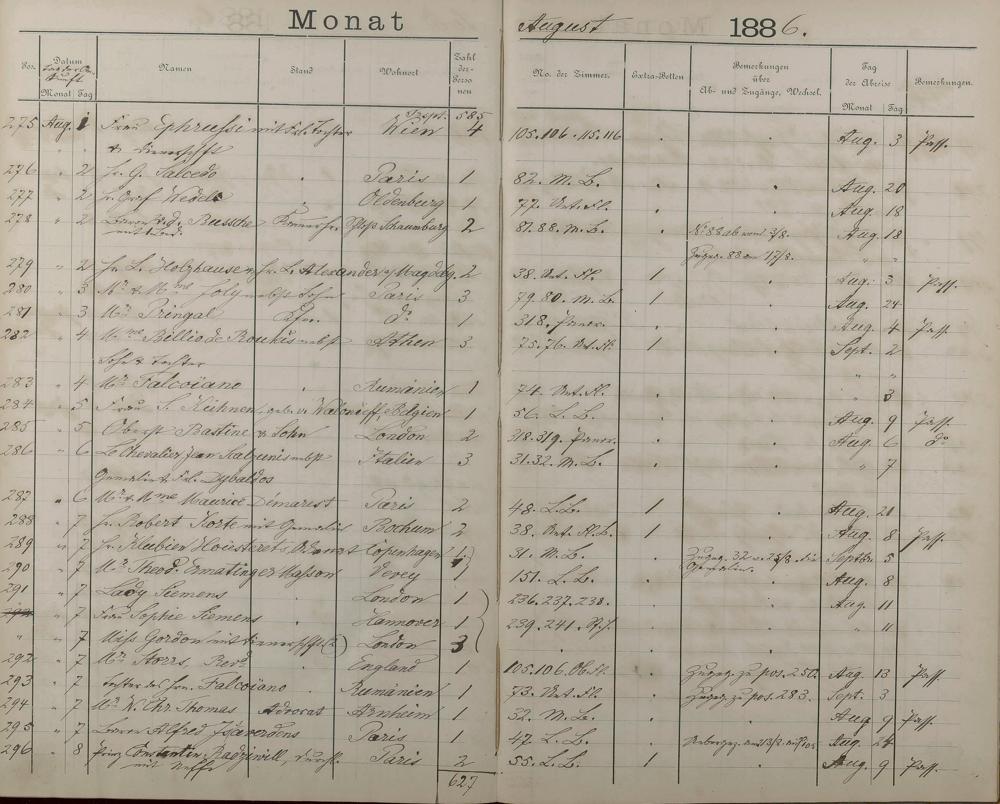 Monat August 1886.
Pos. Datum der An-kunft Namen Stand Wohnort Zahl der Perso nen No. der Zimmer. Extra-Betten Bemerkungen über Ab- und Zugänge, Wechsel. Tag der Abreise Bemerkungen.
Monat Tag Monat Tag
Trspt. 585
275 Aug. 1 Frau Ephrussi mit Frl. Tochter Wien 4 105.106.115.116 Aug. 3 Pass.
& Dienerschft
276 " 2 Hr. G. Salcedo Paris 1 82. M. B. Aug. 20
277 " 2 Hr. Graf Wedel Oldenburg 1 77. Unt. Fl. Aug. 18
278 " 2 Baron v. d. Bussche Kammerhr. Schaumburg 2 87.88. M. B. No 88 ab vom 3/8. Aug. 18
Zugez. 88 am 17/8. " "
279 " 2 Hr. L. Holzhausen, Hr. L. Alexander, Magdbg. 2 38. Unt. Fl. 1 Aug. 3 Pass.
280 " 3 Mr. & Mme Joly nebst Sohn Paris 3 79.80. M. B. 1 Aug. 24
281 " 3 Mr. Pringal do 1 318. Aug. 4 Pass.
282 " 4 Mme Billio de Roukis nebst Athen 3 75.76. Unt. Fl. 1 Sept. 2
Sohn & Tochter " "
283 " 4 Mr. Falcoiano Rumänien 1 74. Unt. Fl. " 3
284 " 5 Frau S. Kühnen, geb. v. Belgien 1 56. L. B. Aug. 9 Pass.
285 " 5 Oberst Bastine & Sohn London 2 318.319. Aug. 6 do
286 " 6 Le Chevalier Jean nebst Italien 3 31.32. M. B. " 7
Gemalin & Frl. Dybaldos
287 " 6 Mr. & Mme Maurice Démarest Paris 2 48. L. B. 1 Aug. 21
288 " 7 Hr. Robert Korte mit Gemalin Bochum 2 38. Unt. Fl. B. 1 Aug. 8 Pass.
289 " 7 Hr. Klubien Copenhagen 1 31. M. B. Zugez. 32 v. 25/8. die Septbr 5
Gemalin.
290 " 7 Mr. Theod. Ermatinger Masson Vevey 1 151. L. B. Aug. 8
291 " 7 Lady Siemens London 1 236.237.238. Aug. 11
292 " 7 Frau Sophie Siemens Hannover 1 239.241. " 11
" " 7 Miss Gordon mit Dienerschft (2) London 3
292 " 7 Mr. Storrs, Revd England 1 105.106. Ob. St. Zugez. zu pos. 250. Aug. 13 Pass.
293 " 7 Tochter des Hrn. Falcoiano Rumänien 1 73. Unt. Fl. Zugez. zu pos. 283. Sept. 3
294 " 7 Mr. N. Chr. Thomas Advocat Arnheim 1 32. M. B. Aug. 9 Pass.
295 " 7 Baron Alfred Paris 1 47. L. B. Aug. 24
296 " 8 Prinz Constantin Radziwill, Durchl. Paris 2 55. L. B. 1 Aug. 9 Pass.
mit Neffe
627